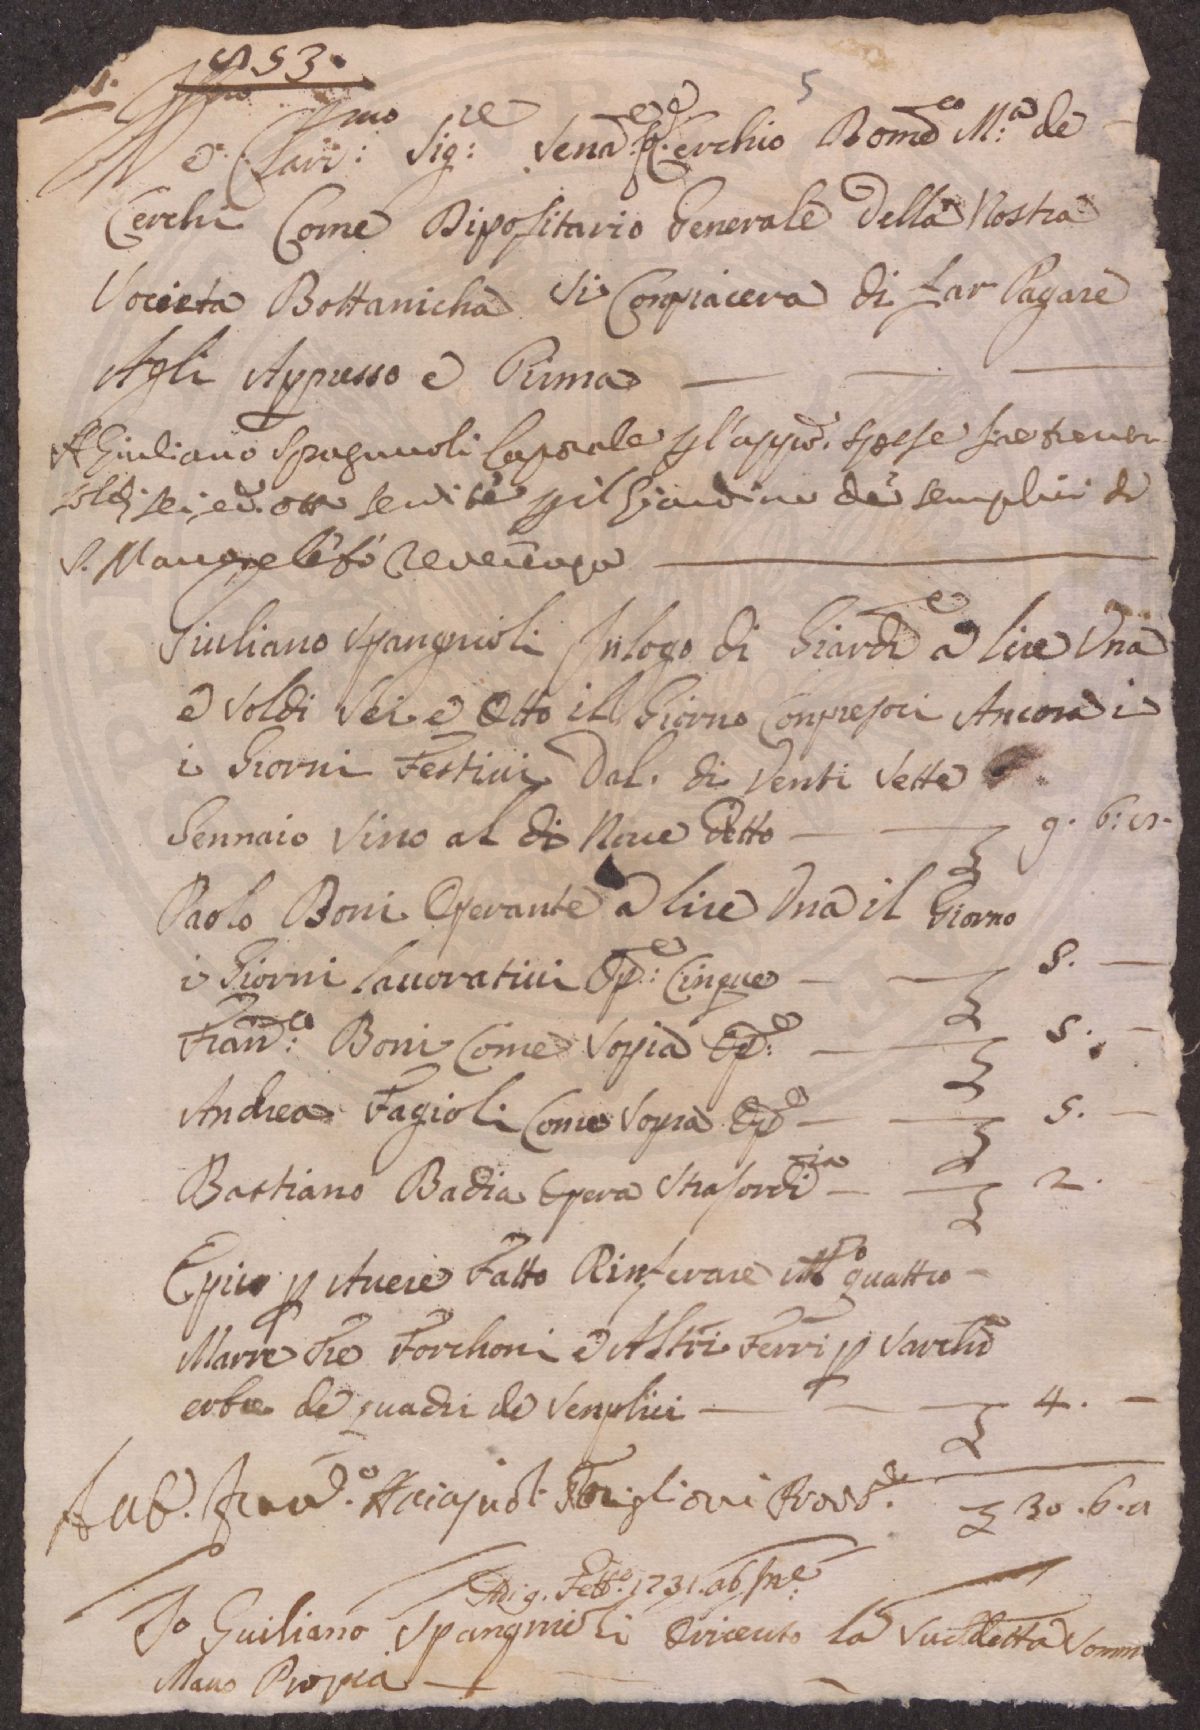 853.
5
Illmo
e Clari: Sig:re Sena:e Cerchio Dome:co M:a de
Cerchi Come Dipositario Generale Della Nostra
Societa Bottanicha Si Conpiacera di Far Pagare
Agli Appresso e Prima
A Giuliano Spagnuoli Caporale p l'app.o spesse
soldi sei, ed otto p il Giardino de semplici di
S. Marco
Giuliano Spangnioli In logo di Giardi:e a lire Una
e Soldi Sei e Otto il Giorno Conpresoci Ancora i
i Giorni Festiui Dal. di Venti Sette
Gennaio Sino al di Noue Detto — 9. 6:
Paolo Boni Operante a lire Una il Giorno
i Giorni lauoratiui Op:e Cinque — 5. —
Fran:co Boni Come Sopra Op:e — 5. —
Andrea Fagioli Come Sopra Op:e — 5. —
Bastiano Badia Opera Strasordi:ria — 2. —
E piu p Auere Fatto Rinferrare quattro
Marre Tre Forchoni e Altri Ferri p Sarchia
erbe de quadri de Senplici — 4. —
Fran.co Acciajuoli Torriglioni Provv.re 30. 6.
Adi 9. Febb.o 1731. ab Inc.e
Io Guiliano Spangnioli o riceuto la Suddetta Somm
Mano Propia —